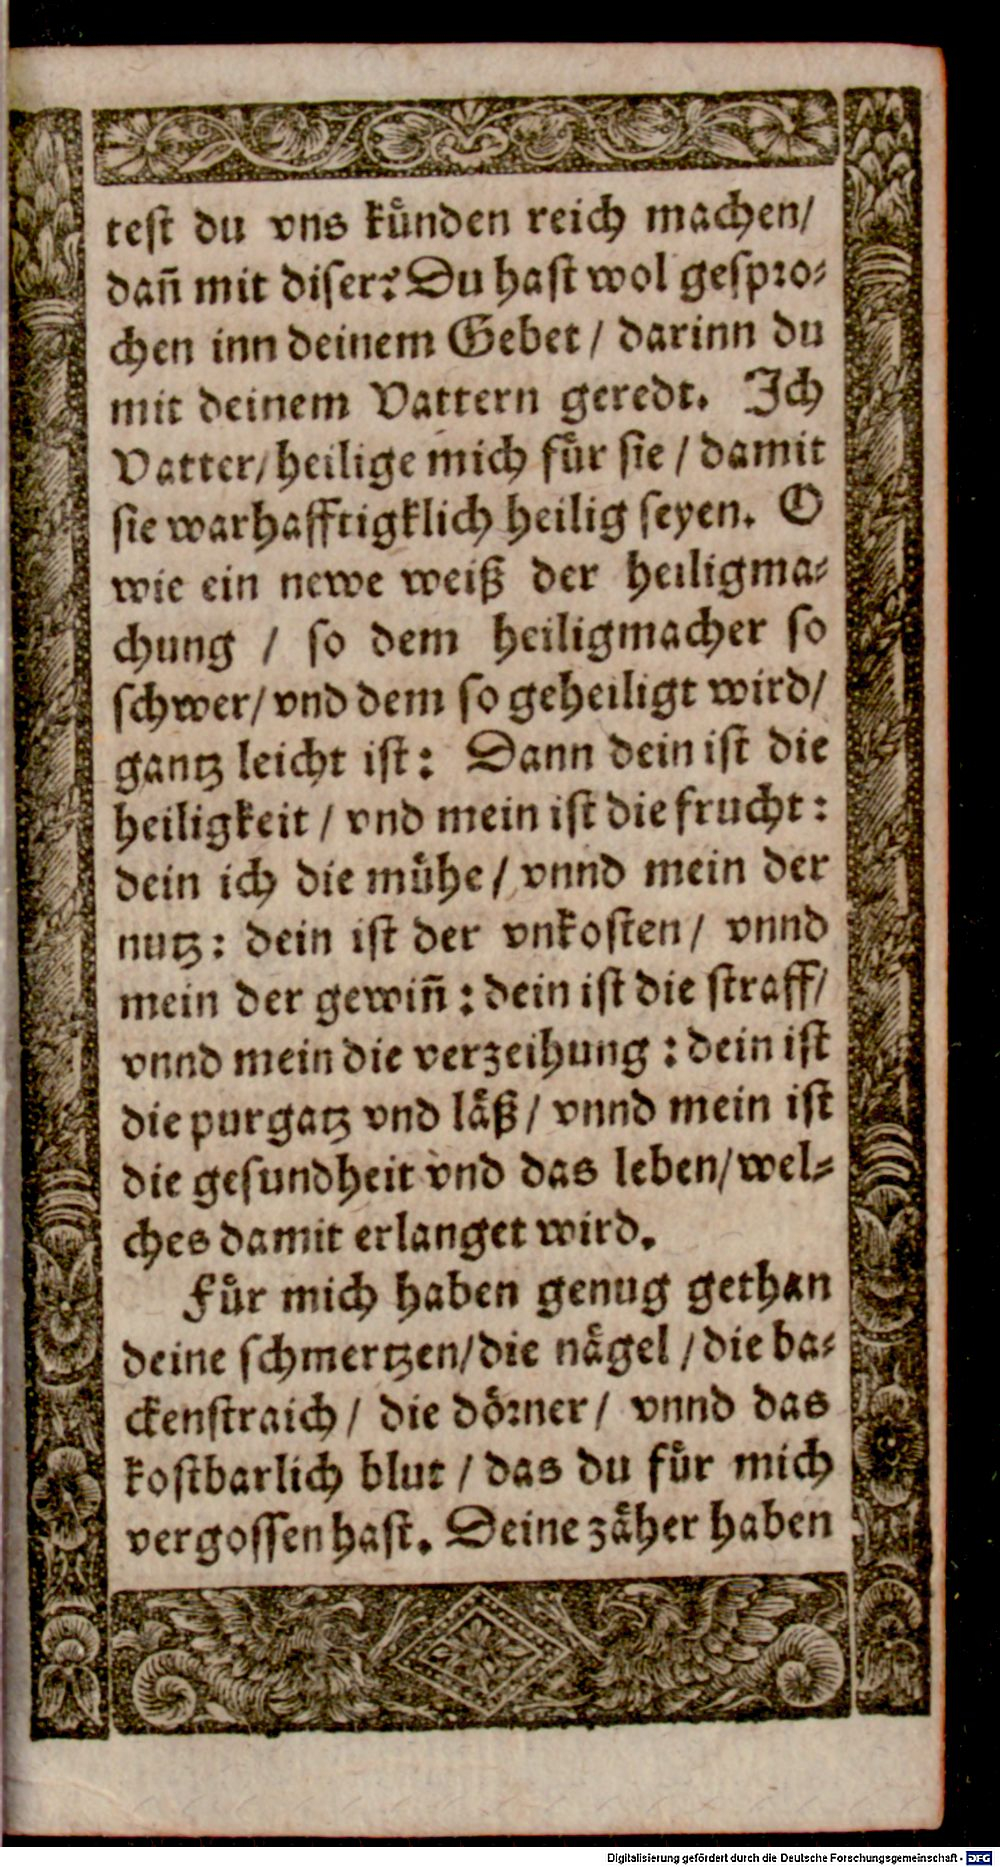 test du vns kuͤnden reich machen/
dañ mit diser? Du hast wol gespro⸗
chen inn deinem Gebet / darinn du
mit deinem Vattern geredt. Ich
Vatter/ heilige mich fuͤr sie / damit
sie warhafftigklich heilig seyen. O
wie ein newe weiß der heiligma⸗
chung / so dem heiligmacher so
schwer/ vnd dem so geheiligt wird/
gantz leicht ist: Dann dein ist die
heiligkeit / vnd mein ist die frucht:
dein ich die muͤhe / vnnd mein der
nutz: dein ist der vnkosten/ vnnd
mein der gewiñ: dein ist die straff/
vnnd mein die verzeihung: dein ist
die purgatz vnd laͤß/ vnnd mein ist
die gesundheit vnd das leben/ wel⸗
ches damit erlanget wird.
Fuͤr mich haben genug gethan
deine schmertzen/ die naͤgel / die ba⸗
ckenstraich/ die doͤrner/ vnnd das
kostbarlich blut / das du fuͤr mich
vergossen hast. Deine zaͤher haben
Digitalisierung gefördert durch die Deutsche Forschungsgemeinschaft - DFG